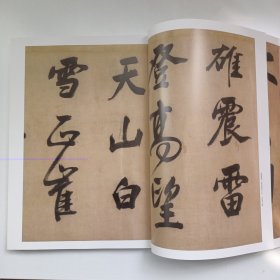 雄震雷
登高望
天山白
雪正崔